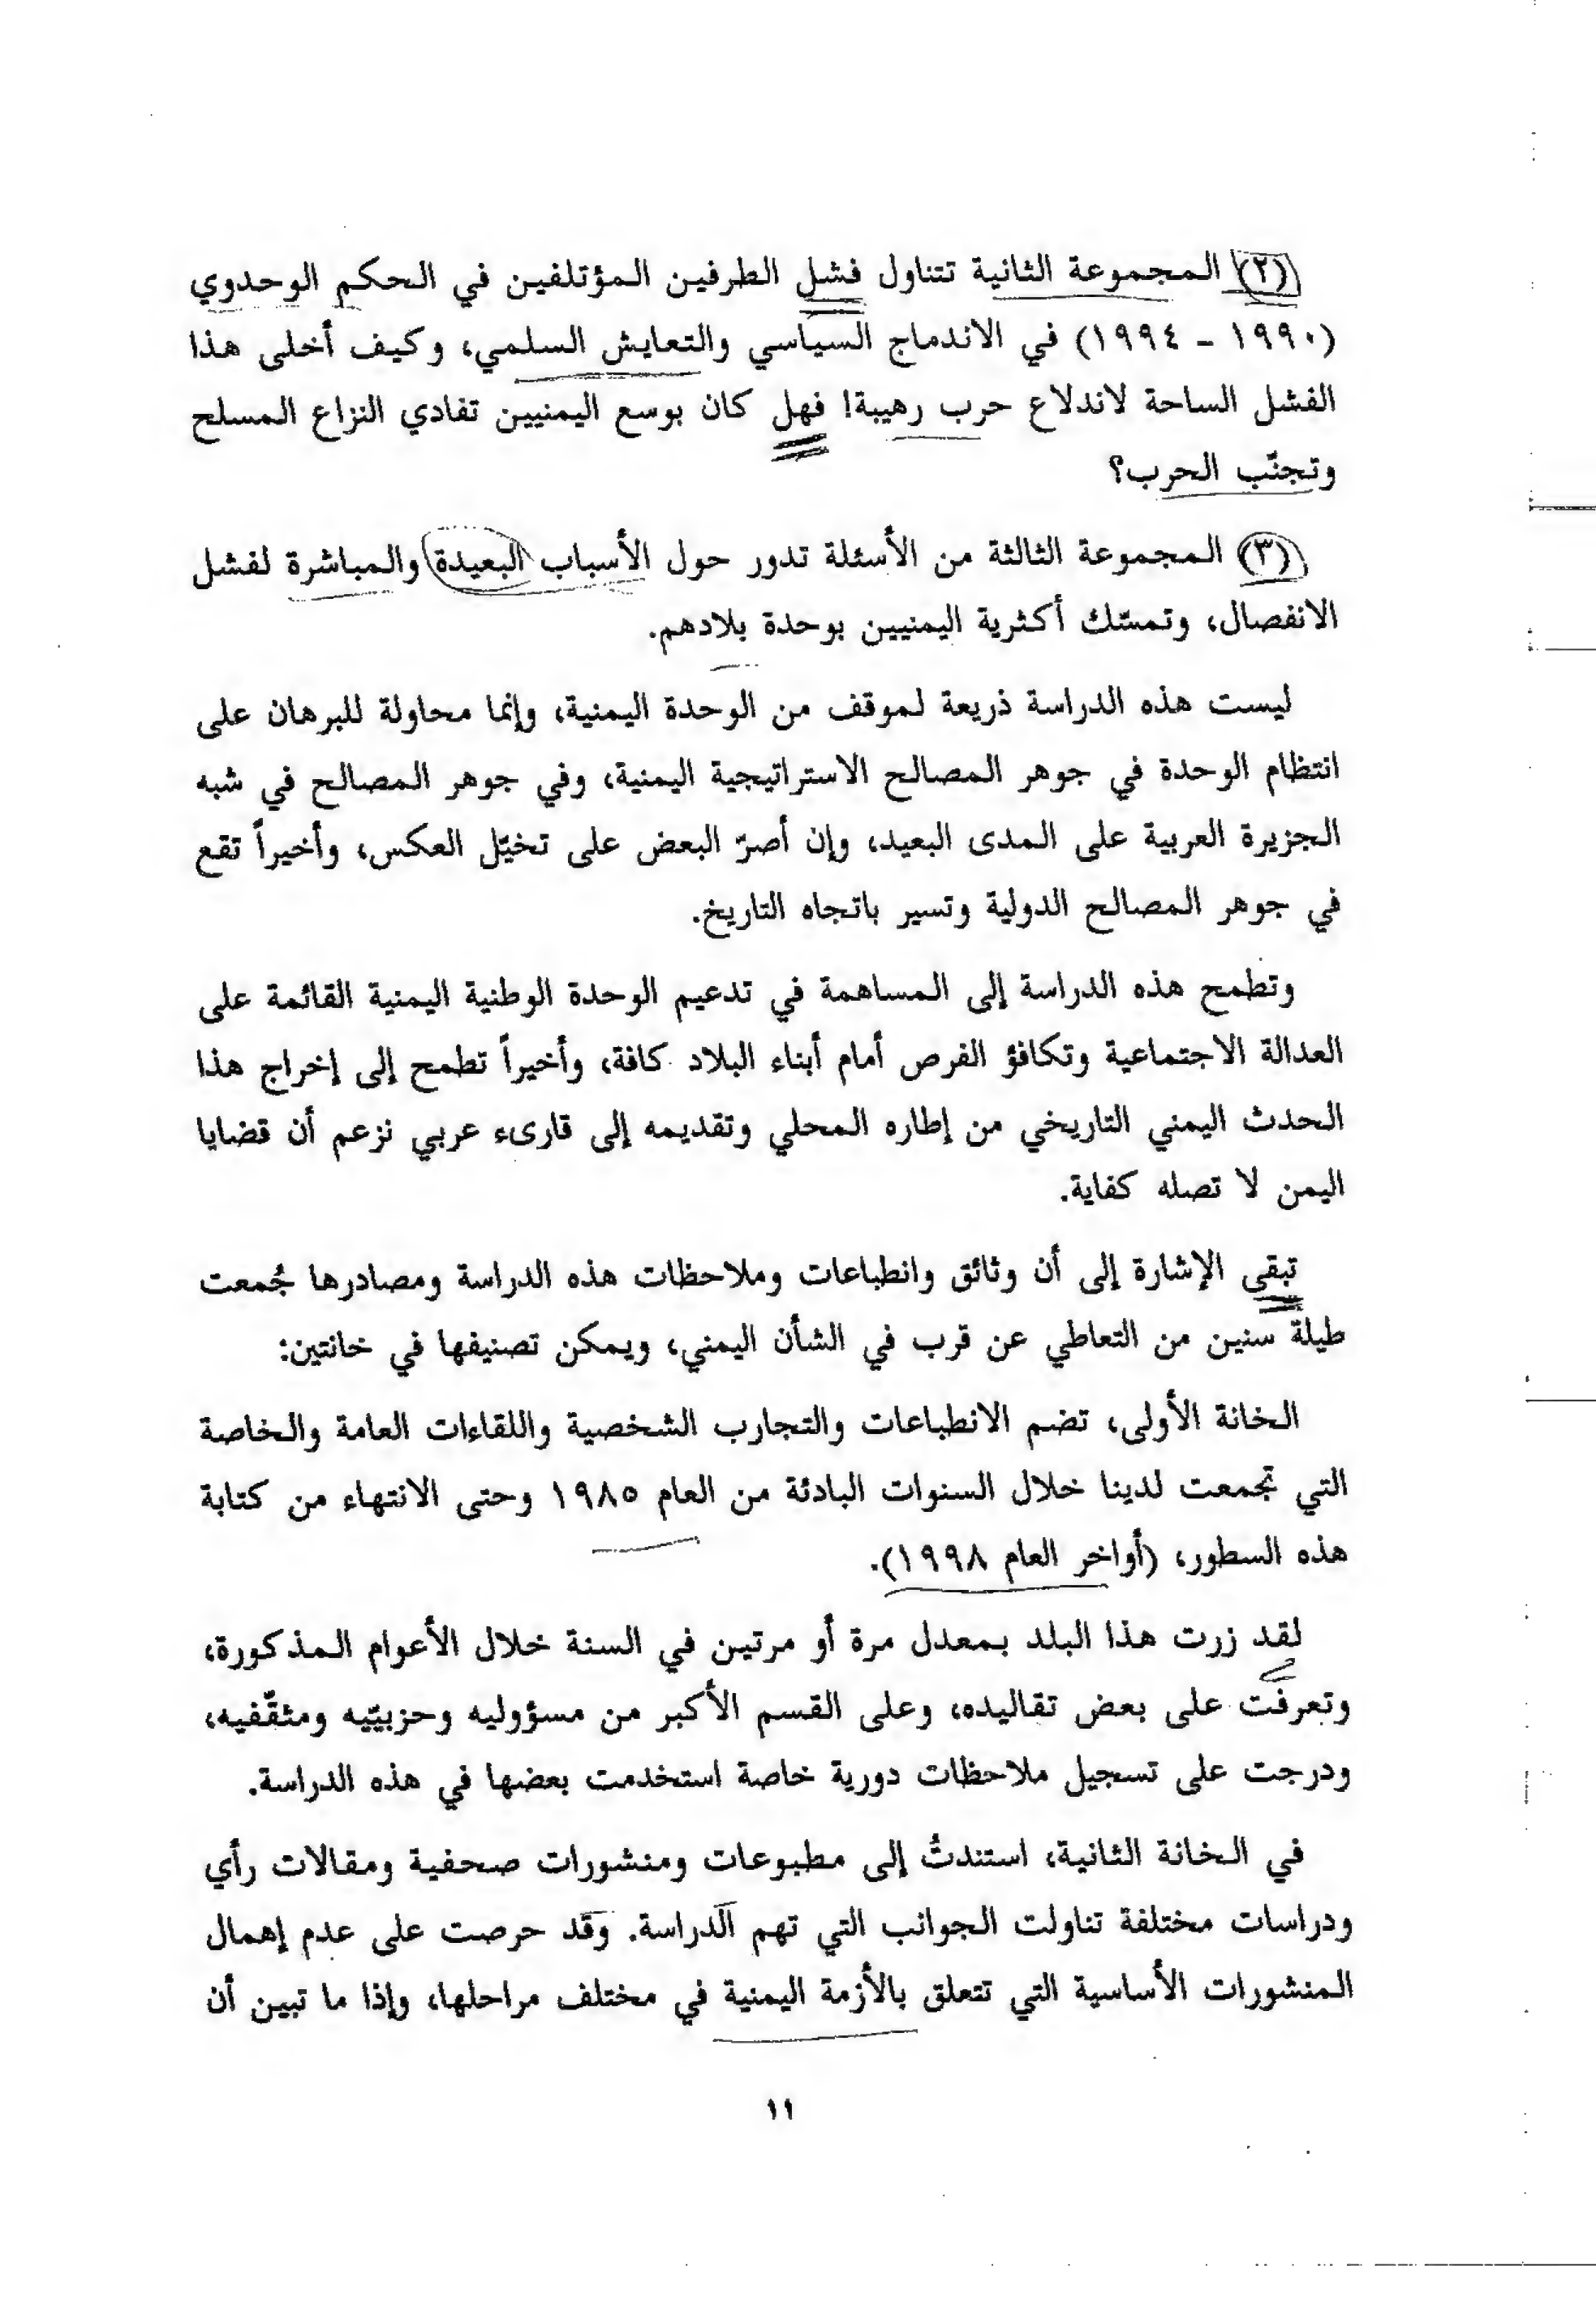 (٢) المجموعة الثانية تتناول فشل الطرفين المؤتلفين في الحكم الوحدوي
(١٩٩٠ - ١٩٩٤) في الاندماج السياسي والتعايش السلمي، وكيف أخلى هذا
الفشل الساحة لاندلاع حرب رهيبة! فهل كان بوسع اليمنيين تفادي النزاع المسلح
وتجنّب الحرب؟
(٣) المجموعة الثالثة من الأسئلة تدور حول الأسباب البعيدة والمباشرة لفشل
الانفصال، وتمسّك أكثرية اليمنيين بوحدة بلادهم.
ليست هذه الدراسة ذريعة لموقف من الوحدة اليمنية، وإنما محاولة للبرهان على
انتظام الوحدة في جوهر المصالح الاستراتيجية اليمنية، وفي جوهر المصالح في شبه
الجزيرة العربية على المدى البعيد، وإن أصرّ البعض على تخيّل العكس، وأخيراً تقع
في جوهر المصالح الدولية وتسير باتجاه التاريخ.
وتطمح هذه الدراسة إلى المساهمة في تدعيم الوحدة الوطنية اليمنية القائمة على
العدالة الاجتماعية وتكافؤ الفرص أمام أبناء البلاد كافة، وأخيراً تطمح إلى إخراج هذا
الحدث اليمني التاريخي من إطاره المحلي وتقديمه إلى قارىء عربي نزعم أن قضايا
اليمن لا تصله كفاية.
تبقى الإشارة إلى أن وثائق وانطباعات وملاحظات هذه الدراسة ومصادرها جُمعت
طيلة سنين من التعاطي عن قرب في الشأن اليمني، ويمكن تصنيفها في خانتين:
الخانة الأولى، تضم الانطباعات والتجارب الشخصية واللقاءات العامة والخاصة
التي تجمعت لدينا خلال السنوات البادئة من العام ١٩٨٥ وحتى الانتهاء من كتابة
هذه السطور، (أواخر العام ١٩٩٨).
لقد زرت هذا البلد بمعدل مرة أو مرتين في السنة خلال الأعوام المذكورة،
وتعرفت على بعض تقاليده، وعلى القسم الأكبر من مسؤوليه وحزبيّيه ومثقّفيه،
ودرجت على تسجيل ملاحظات دورية خاصة استخدمت بعضها في هذه الدراسة.
في الخانة الثانية، استندتُ إلى مطبوعات ومنشورات صحفية ومقالات رأي
ودراسات مختلفة تناولت الجوانب التي تهم الدراسة. وقد حرصت على عدم إهمال
المنشورات الأساسية التي تتعلق بالأزمة اليمنية في مختلف مراحلها، وإذا ما تبين أن
١١